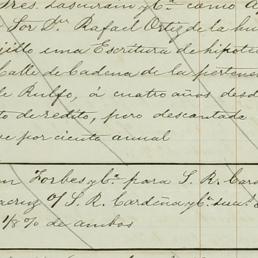 Tres. Lascurain y Ca. como
Sor Dn. Rafael Ortiz de la
una Escritura de hipote
Calle de Cadena de la pertenen
de Rulfo, á cuatro años desd
to de redito, pero descontado
ve por ciento anual
Forbes y Ca. para S. R. Card
S. R. Cardeña y Ca.
1/8 % de ambos